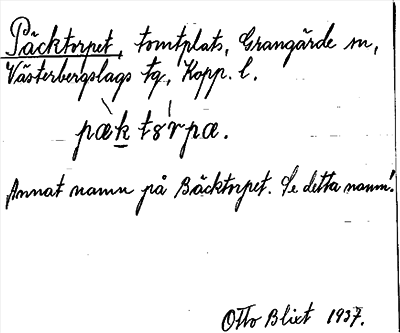 Päcktorpet, tomtplats, Grangärde sn,
Västerbergslags tg, Kopp. l.
pæk tɵrpa.
Annat namn på Bäcktorpet. Se detta namn!
Otto Blixt 1937.